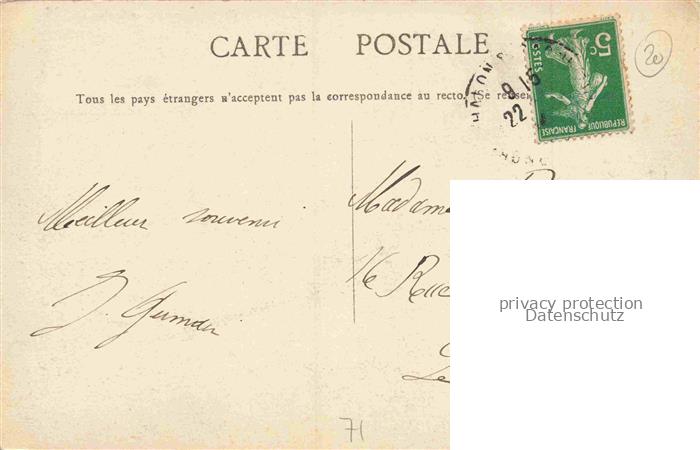 CARTE POSTALE
Tous les pays étrangers n'acceptent pas la correspondance au recto. (Se renser
5c
POSTES
REPUBLIQUE FRANÇAISE
20
9 15
22
RHONE
Meilleur souvenir
Madame
16 Rue
Le
71
privacy protection
Datenschutz